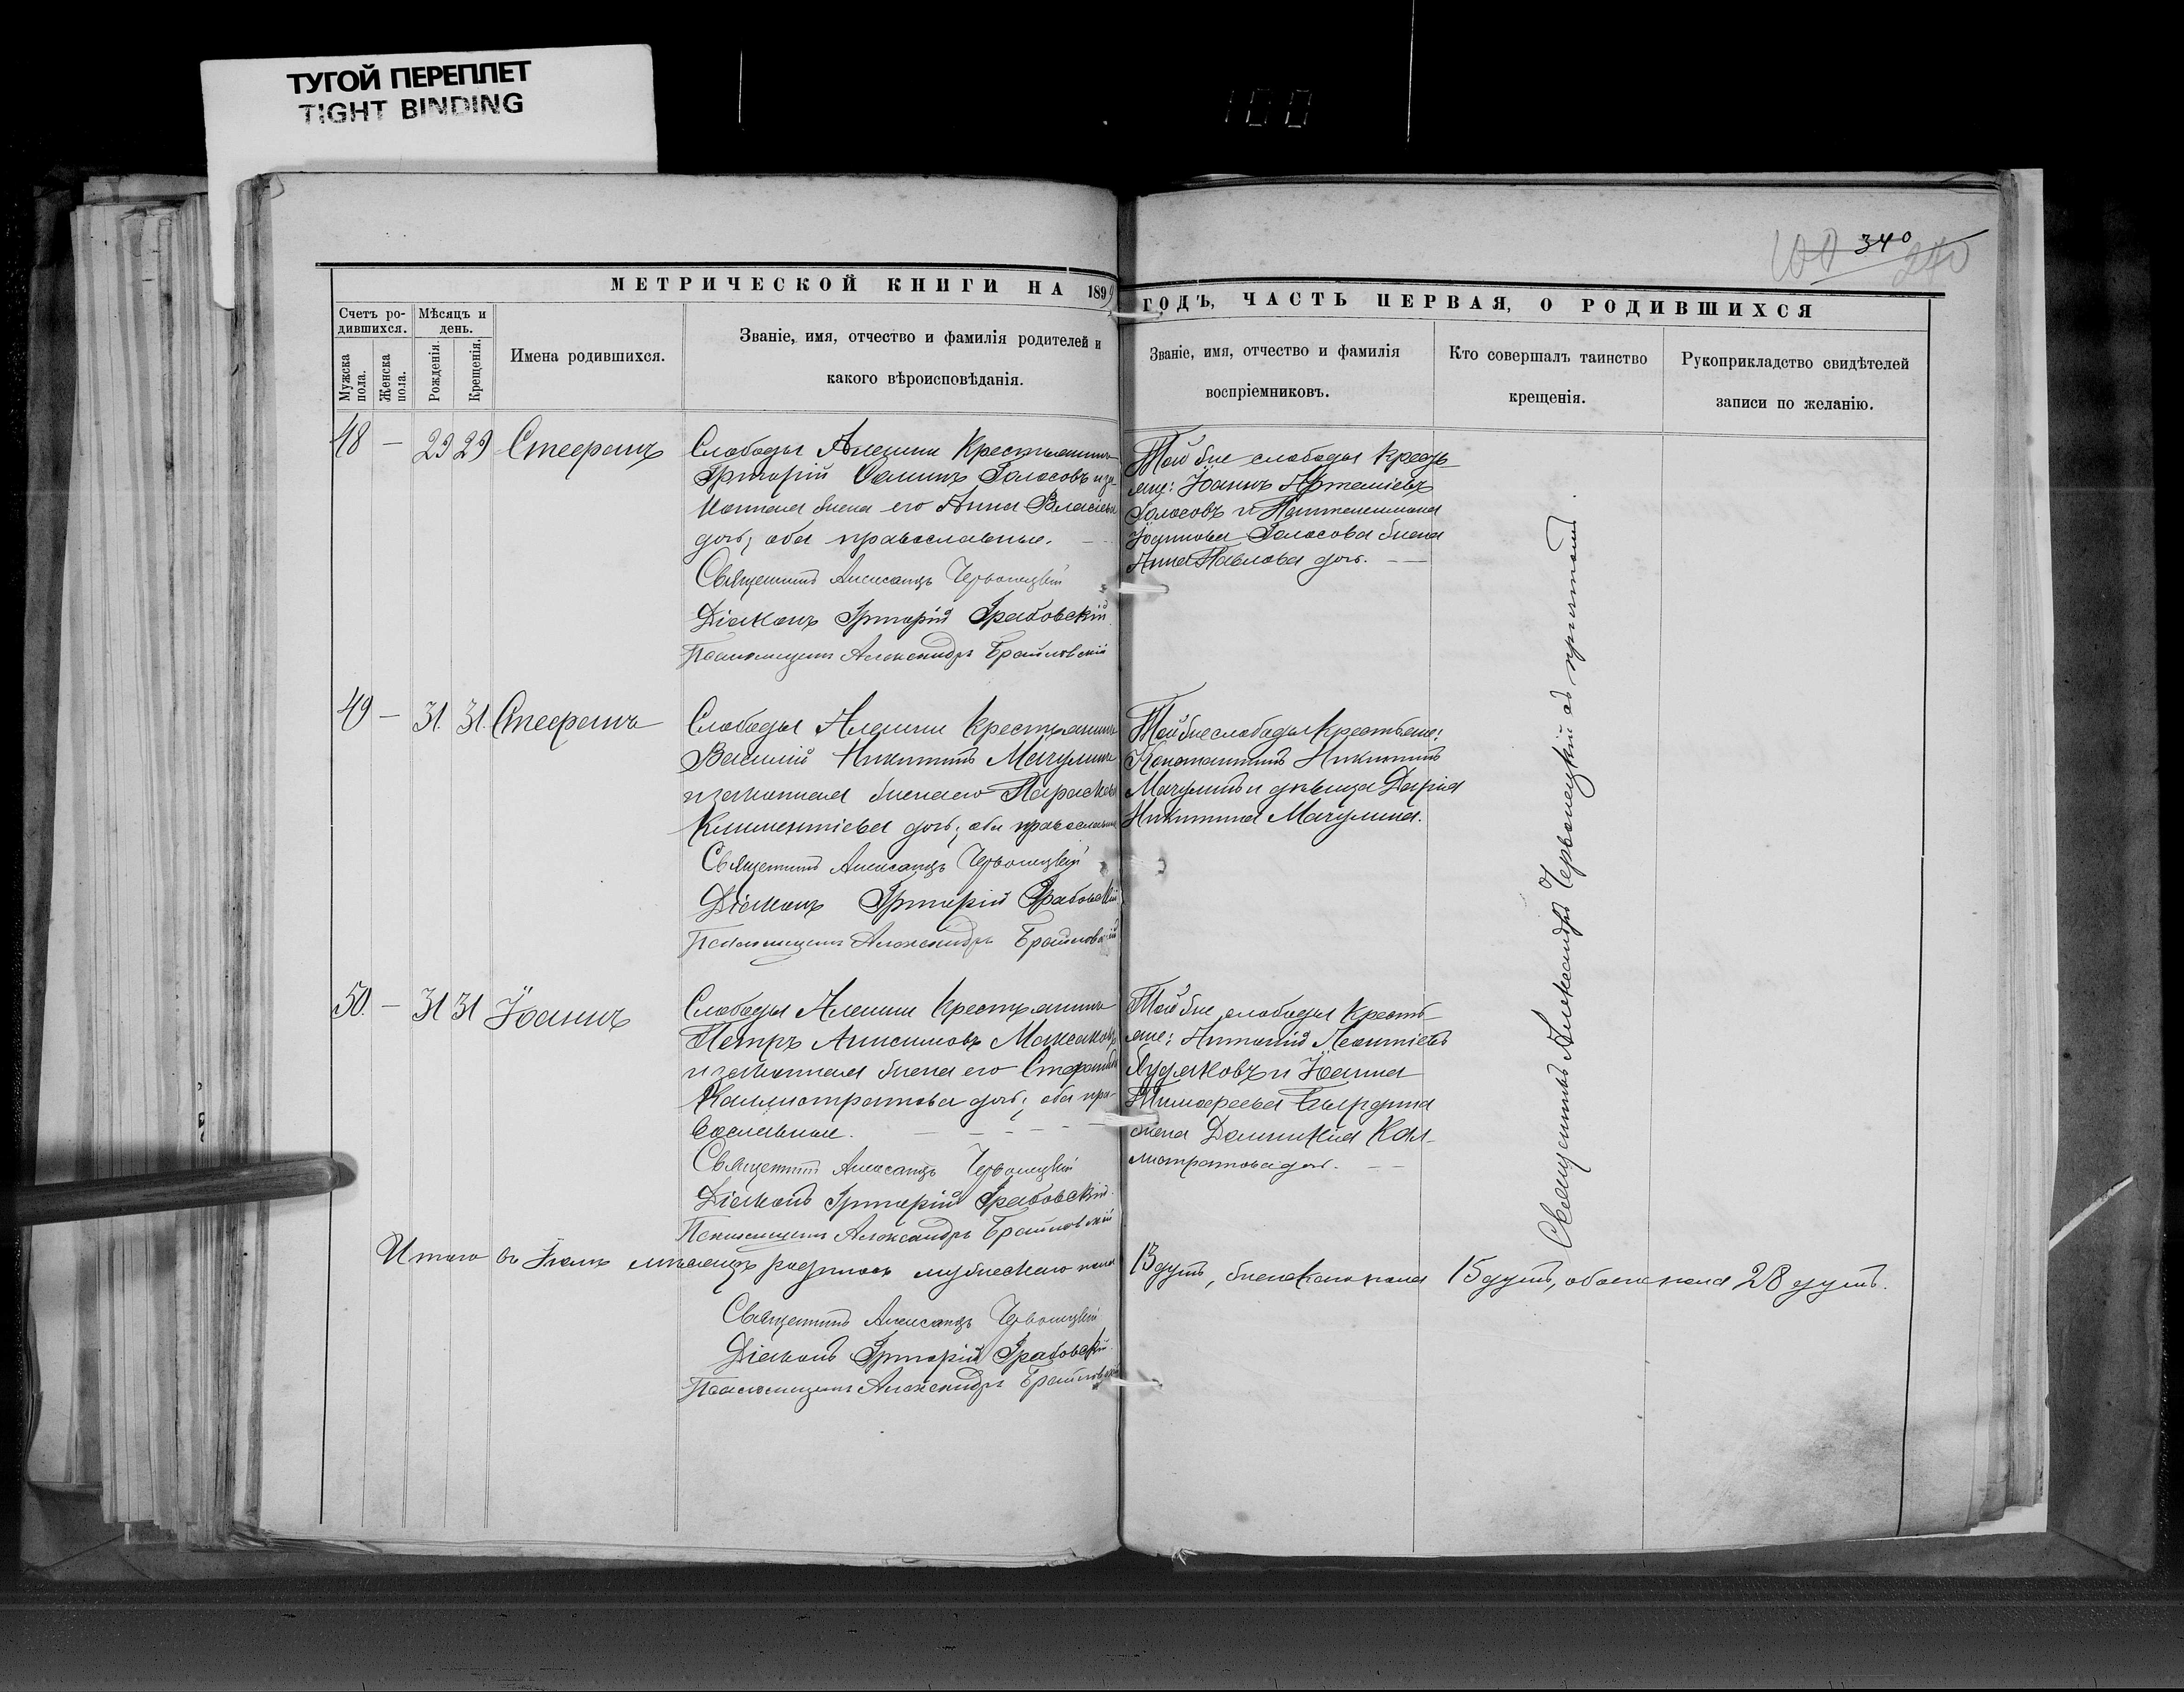 ТУГОЙ ПЕРЕПЛЕТ
TIGHT BINDING
100
100 340 240
МЕТРИЧЕСКОЙ КНИГИ НА 1899
ГОДЪ, ЧАСТЬ ПЕРВАЯ, О РОДИВШИХСЯ
Счетъ ро-
дившихся.
Мѣсяцъ и
день.
Мужска
пола.
Женска
пола.
Рожденія.
Крещенія.
Имена родившихся.
Званіе, имя, отчество и фамилія родителей и
какого вѣроисповѣданія.
Званіе, имя, отчество и фамилія
воспріемниковъ.
Кто совершалъ таинство
крещенія.
Рукоприкладство свидѣтелей
записи по желанію.
48 — 29 29 Стефанъ
Слободы Алешни Крестьянинъ
Григорій Голосовъ и за-
конная жена его Анна Власіева
дочь; оба православные.
Священникъ Александръ Червонецкій
Діаконъ Григорій Грабовскій
Псаломщикъ Александръ Браиловскій
Той же слободы Кресть-
яне: Іоаннъ Артеміевъ
Голосовъ и Пантелеимона
Голосова жена
Анна Павлова дочь.
49 — 31. 31. Стефанъ
Слободы Алешни Крестьянинъ
Василій Никитинъ Мачулинъ
и законная жена его Параскева
Климентіева дочь; оба православные
Священникъ Александръ Червонецкій
Діаконъ Григорій Грабовскій
Псаломщикъ Александръ Браиловскій
Той же слободы Крестьяне:
Константинъ Никитинъ
Мачулинъ и дѣвица Дарія
Никитина Мачулина.
50. — 31 31 Іоаннъ
Слободы Алешни Крестьянинъ
Петръ Анисимовъ Максаковъ
и законная жена его Стефанида
Каллистратова дочь; оба пра-
вославные.
Священникъ Александръ Червонецкій
Діаконъ Григорій Грабовскій
Псаломщикъ Александръ Браиловскій
Той же слободы Кресть-
яне: Антоній Леонтіевъ
и Іоанна
Тимофеева
жена Домникія Кал-
листратова дочь.
Священникъ Александръ Червонецкій съ причтомъ
Итого въ Іюлѣ мѣсяцѣ родилось мужескаго пола 13 душъ, женскаго пола 15 душъ, обоего пола 28 душъ.
Священникъ Александръ Червонецкій
Діаконъ Григорій Грабовскій
Псаломщикъ Александръ Браиловскій